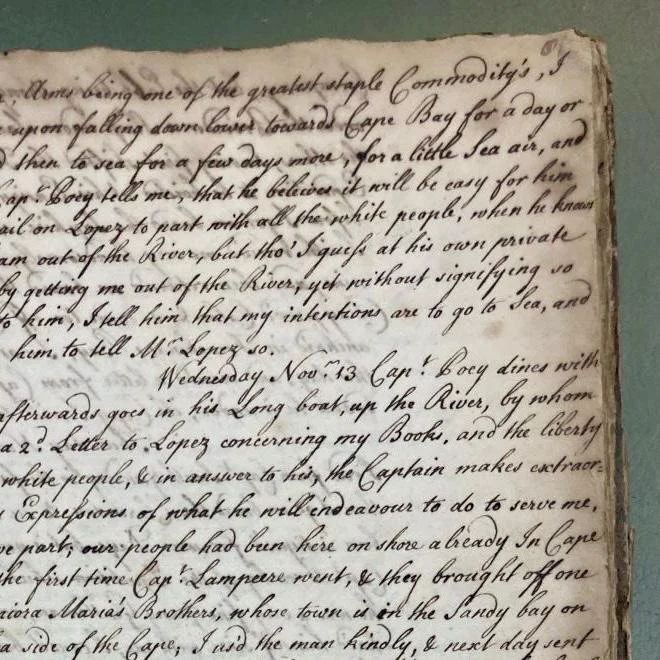 , Arms being one of the greatest staple Commodity's, I
upon falling down lower towards Cape Bay for a day or
then to sea for a few days more, for a little Sea air, and
Cap.t Poey tells me, that he beleives it will be easy for him
ail on Lopez to part with all the white people, when he knows
am out of the River, but tho' I guess at his own private
by getting me out of the River, yet without signifying so
to him, I tell him that my intentions are to go to Sea, and
him, to tell M.r Lopez so.
Wednesday Nov.m 13 Cap.t Poey dines with
afterwards goes in his Long boat, up the River, by whom
a 2.d Letter to Lopez concerning my Books, and the liberty
white people, & in answer to his, the Captain makes extraor=
Expressions of what he will indeavour to do to serve me,
ve part, our people had been here on shore already In Cape
the first time Cap.t Lampeere went, & they brought off one
niora Maria's Brothers, whose town is in the Sandy bay on
a side of the Cape, I us'd the man kindly, & next day sent